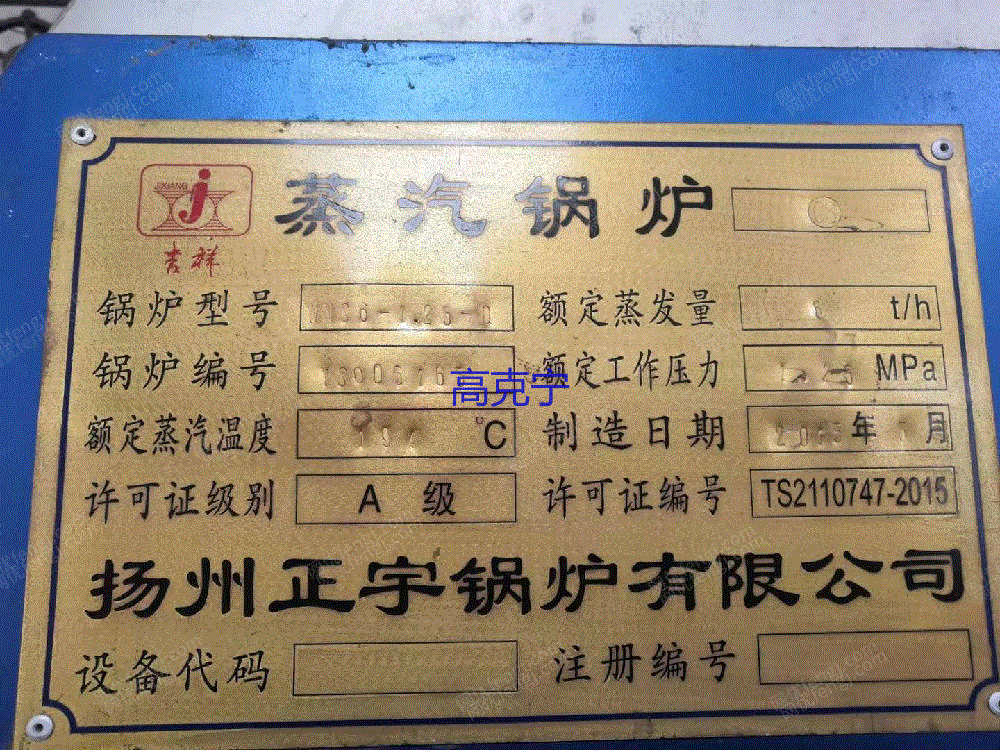 JIXIANG
吉祥
蒸汽锅炉
锅炉型号 额定蒸发量 6 t/h
锅炉编号 额定工作压力 MPa
高克宁
额定蒸汽温度 194 ℃ 制造日期 年 月
许可证级别 A 级 许可证编号 TS2110747-2015
扬州正宇锅炉有限公司
设备代码 注册编号